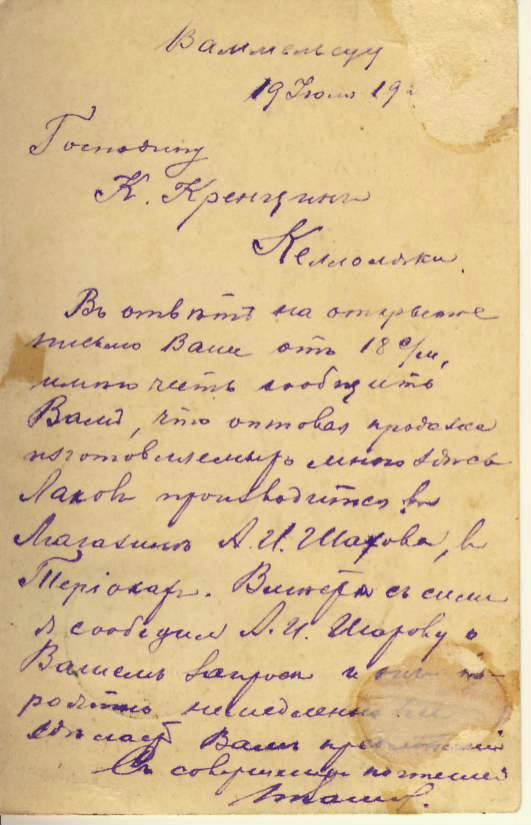 Ваммельсуу
19 Июля 19
Господину
К. Кренцинг
Келломяки.
Въ отвѣтъ на открытое
письмо Ваше отъ 18 с/м,
имѣю честь сообщить
Вамъ, что оптовая продажа
изготовляемыхъ мною здѣсь
Лаковъ производится въ
Магазинѣ А. И. Шарова, въ
Терiокахъ. Вмѣстѣ съ симъ
я сообщилъ А. И. Шарову о
Вашемъ запросѣ и онъ
немедленно
сдѣлаетъ Вамъ
Съ совершеннымъ почтенiемъ